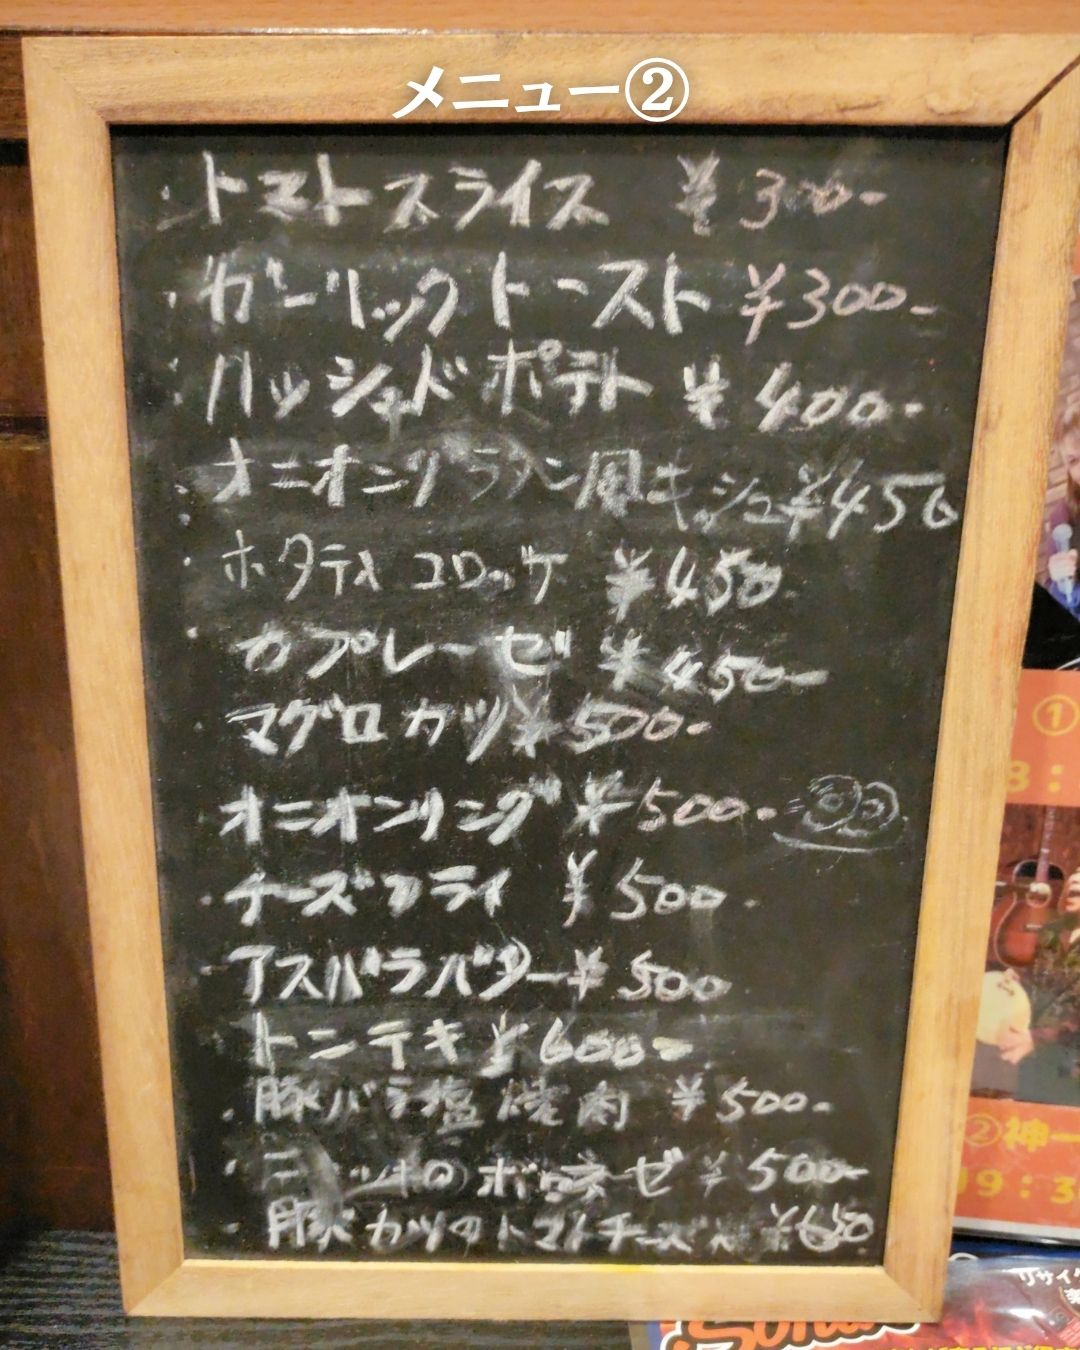 メニュー②
・トマトスライス ¥300-
・ガーリックトースト ¥300-
・ハッシュドポテト ¥400-
・オニオングラタン風キッシュ ¥450
・ホタテコロッケ ¥450-
・カプレーゼ ¥450-
・マグロカツ ¥500-
・オニオンリング ¥500-
・チーズフライ ¥500-
・アスパラバター ¥500
トンテキ ¥600-
・豚バラ塩焼肉 ¥500-
・ニョッキのボロネーゼ ¥500-
・豚カツのトマトチーズ ¥650
①
8:
②神一
19:3
リサイク